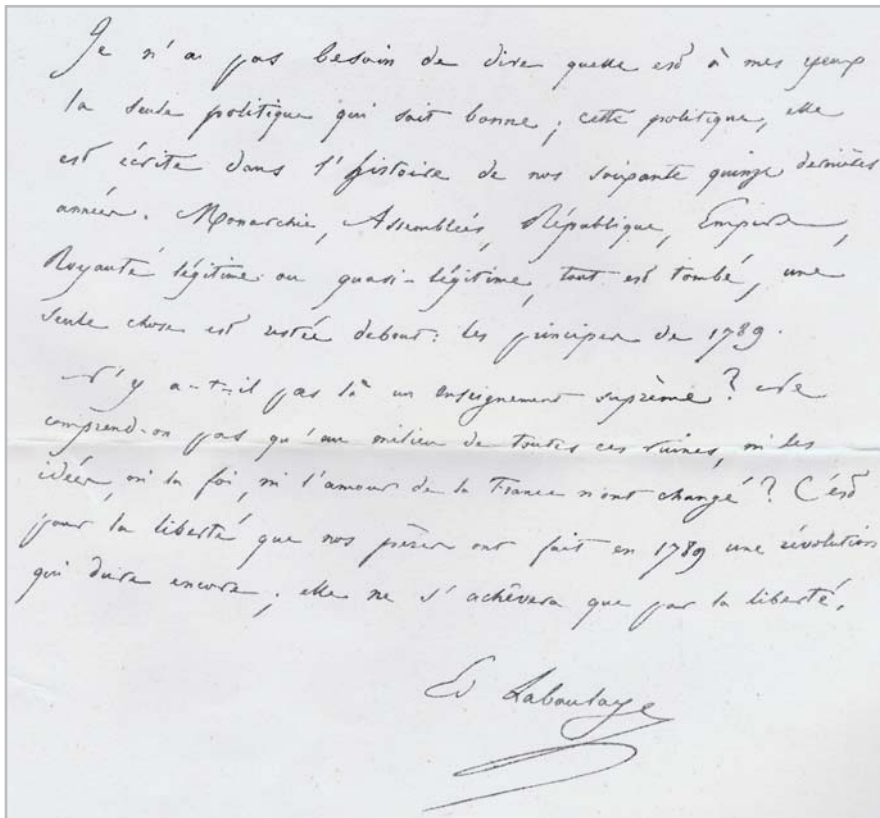 Je n'ai pas besoin de dire quelle est à mes yeux
la seule politique qui soit bonne ; cette politique, elle
est écrite dans l'histoire de nos soixante quinze dernières
années. Monarchie, Assemblées, République, Empire,
Royauté légitime ou quasi-légitime, tout est tombé, une
seule chose est restée debout : les principes de 1789.
N'y a-t-il pas là un enseignement suprême ? Ne
comprend-on pas qu'au milieu de toutes ces ruines, ni les
idées, ni la foi, ni l'amour de la France n'ont changé ? C'est
pour la liberté que nos pères ont fait en 1789 une révolution
qui dure encore ; elle ne s'achèvera que par la liberté.
Ed Laboulaye